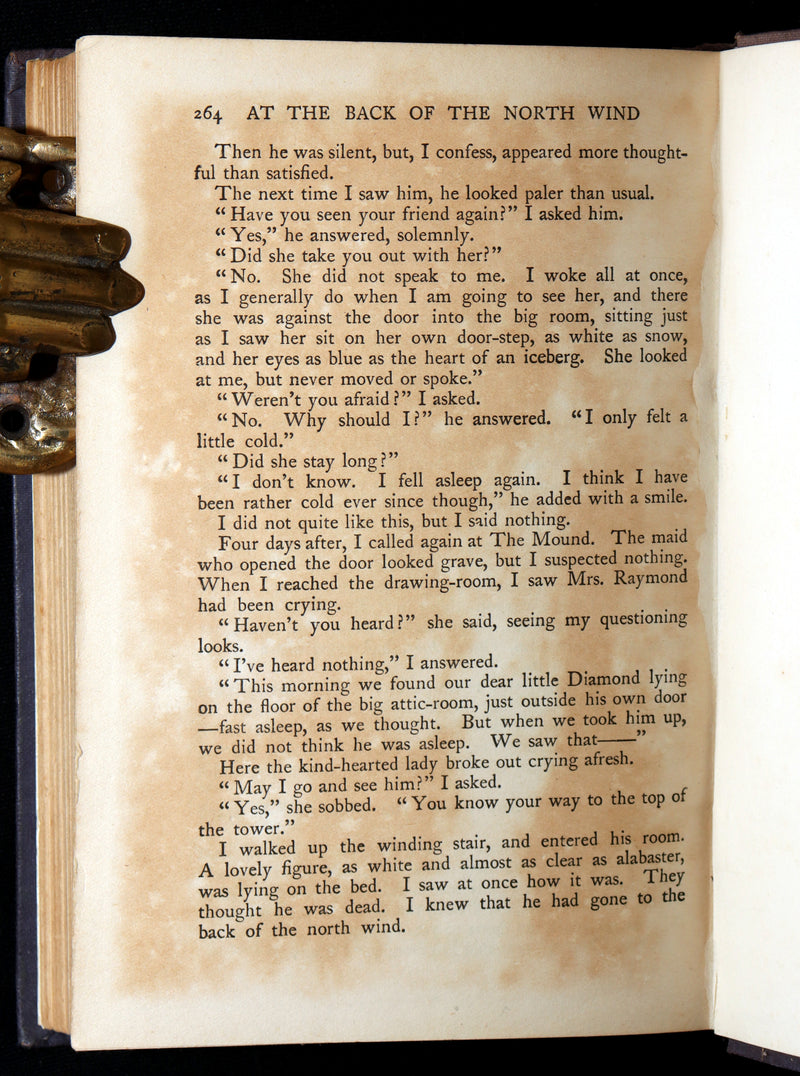 264 AT THE BACK OF THE NORTH WIND
Then he was silent, but, I confess, appeared more thought-
ful than satisfied.
The next time I saw him, he looked paler than usual.
“Have you seen your friend again?” I asked him.
“Yes,” he answered, solemnly.
“Did she take you out with her?”
“No. She did not speak to me. I woke all at once,
as I generally do when I am going to see her, and there
she was against the door into the big room, sitting just
as I saw her sit on her own door-step, as white as snow,
and her eyes as blue as the heart of an iceberg. She looked
at me, but never moved or spoke.”
“Weren’t you afraid?” I asked.
“No. Why should I?” he answered. “I only felt a
little cold.”
“Did she stay long?”
“I don’t know. I fell asleep again. I think I have
been rather cold ever since though,” he added with a smile.
I did not quite like this, but I said nothing.
Four days after, I called again at The Mound. The maid
who opened the door looked grave, but I suspected nothing.
When I reached the drawing-room, I saw Mrs. Raymond
had been crying.
“Haven’t you heard?” she said, seeing my questioning
looks.
“I’ve heard nothing,” I answered.
“This morning we found our dear little Diamond lying
on the floor of the big attic-room, just outside his own door
—fast asleep, as we thought. But when we took him up,
we did not think he was asleep. We saw that——”
Here the kind-hearted lady broke out crying afresh.
“May I go and see him?” I asked.
“Yes,” she sobbed. “You know your way to the top of
the tower.”
I walked up the winding stair, and entered his room.
A lovely figure, as white and almost as clear as alabaster,
was lying on the bed. I saw at once how it was. They
thought he was dead. I knew that he had gone to the
back of the north wind.